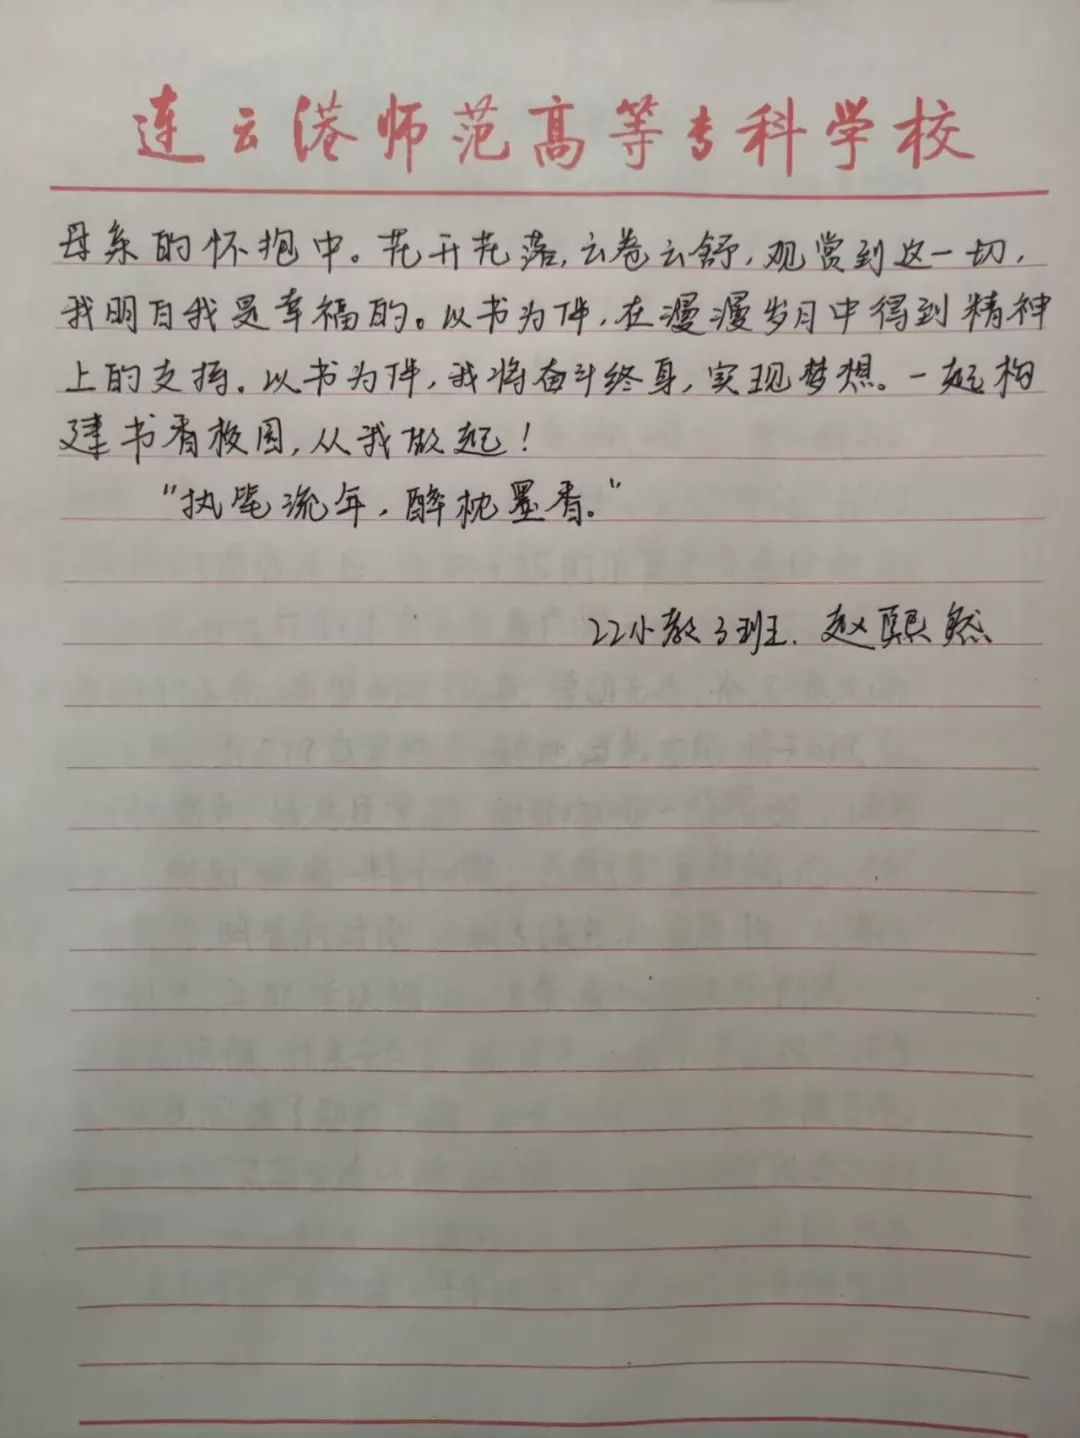 连云港师范高等专科学校
母亲的怀抱中。花开花落,云卷云舒,观赏到这一切,
我明白我是幸福的。以书为伴,在漫漫岁月中得到精神
上的支持。以书为伴,我将奋斗终身,实现梦想。一起构
建书香校园,从我做起!
“执笔流年,醉枕墨香。”
22小教3班. 赵熙然